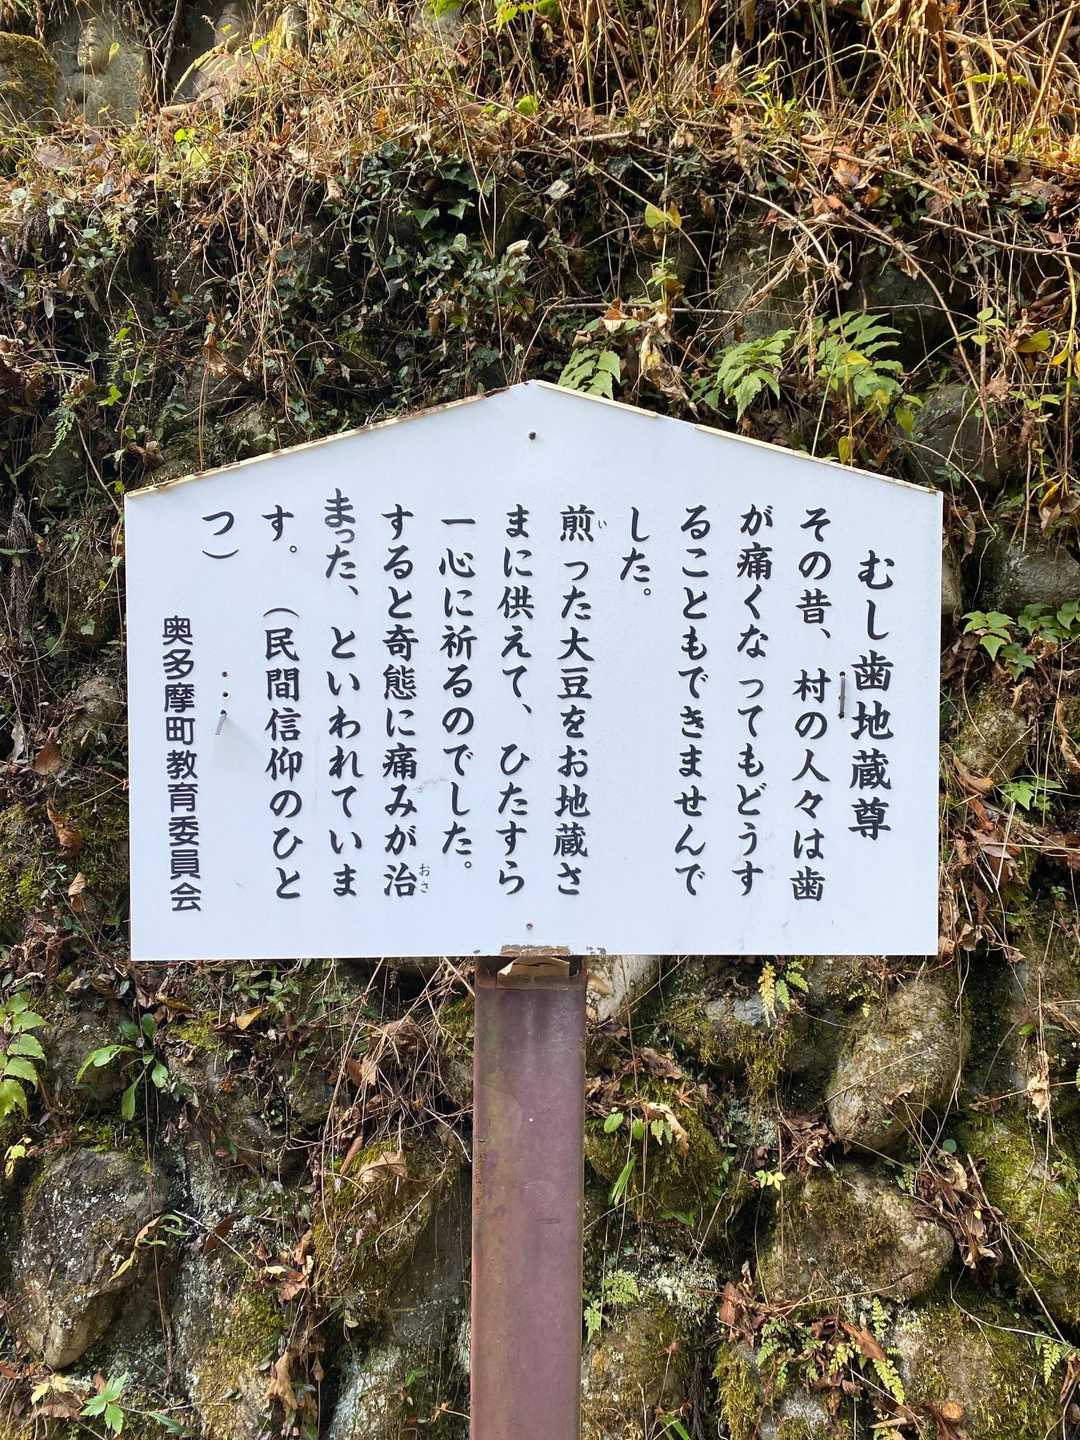 むし歯地蔵尊
その昔、村の人々は歯
が痛くなってもどうす
ることもできませんで
した。
煎った大豆をお地蔵さ
まに供えて、ひたすら
一心に祈るのでした。
すると奇態に痛みが治
まった、といわれていま
す。（民間信仰のひと
つ）
奥多摩町教育委員会